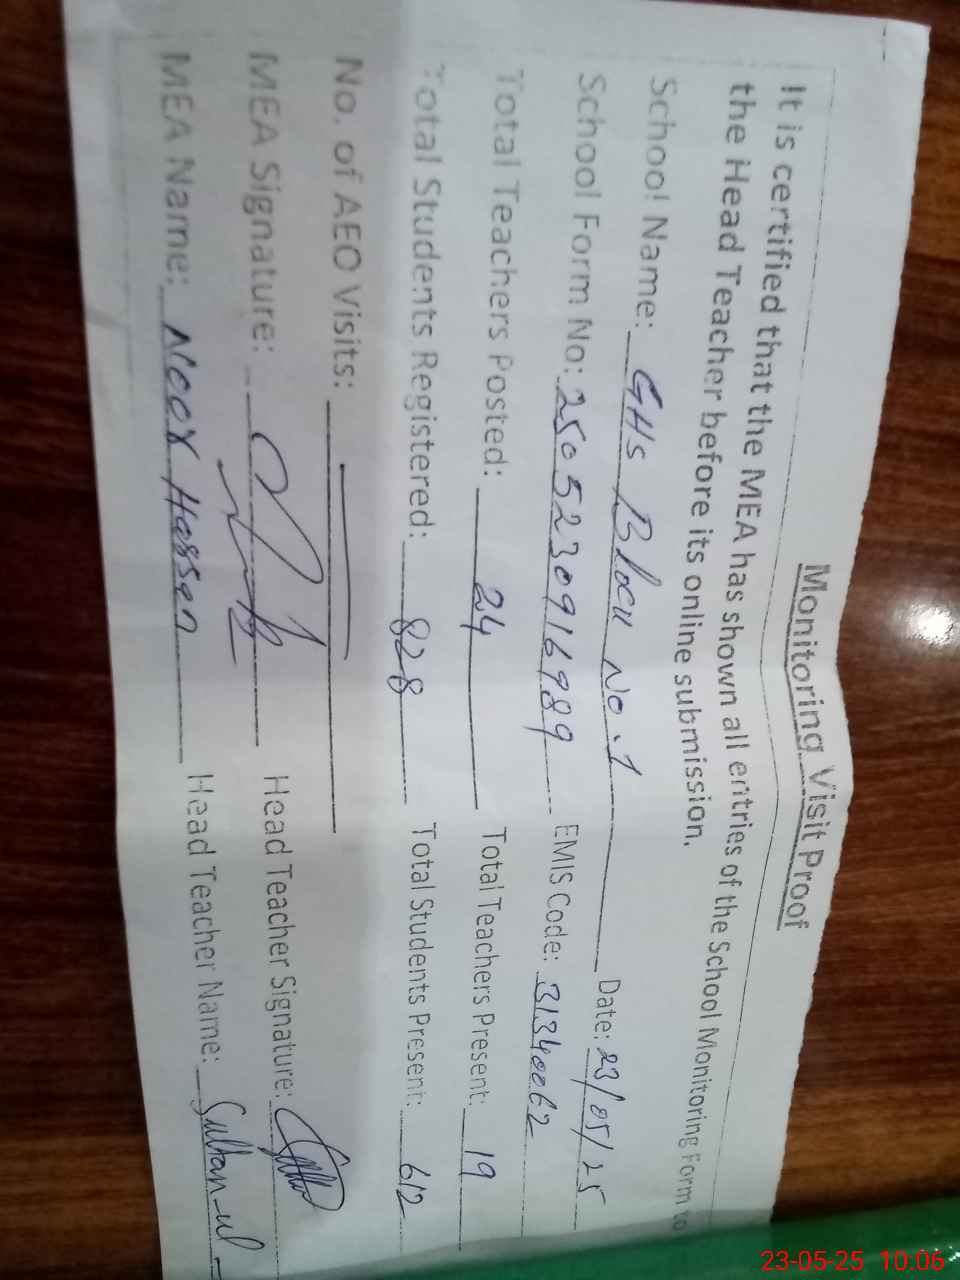 Monitoring Visit Proof
It is certified that the MEA has shown all entries of the School Monitoring Form to
the Head Teacher before its online submission.
School Name: GHS Block No.1 Date: 23/05/25
School Form No: 25052309916989 EMIS Code: 31340062
Total Teachers Posted: 24 Total Teachers Present: 19
Total Students Registered: 828 Total Students Present: 612
No. of AEO Visits:
MEA Signature: Head Teacher Signature:
MEA Name: Noor Hassan Head Teacher Name: Sultan-ul-
23-05-25 10:06